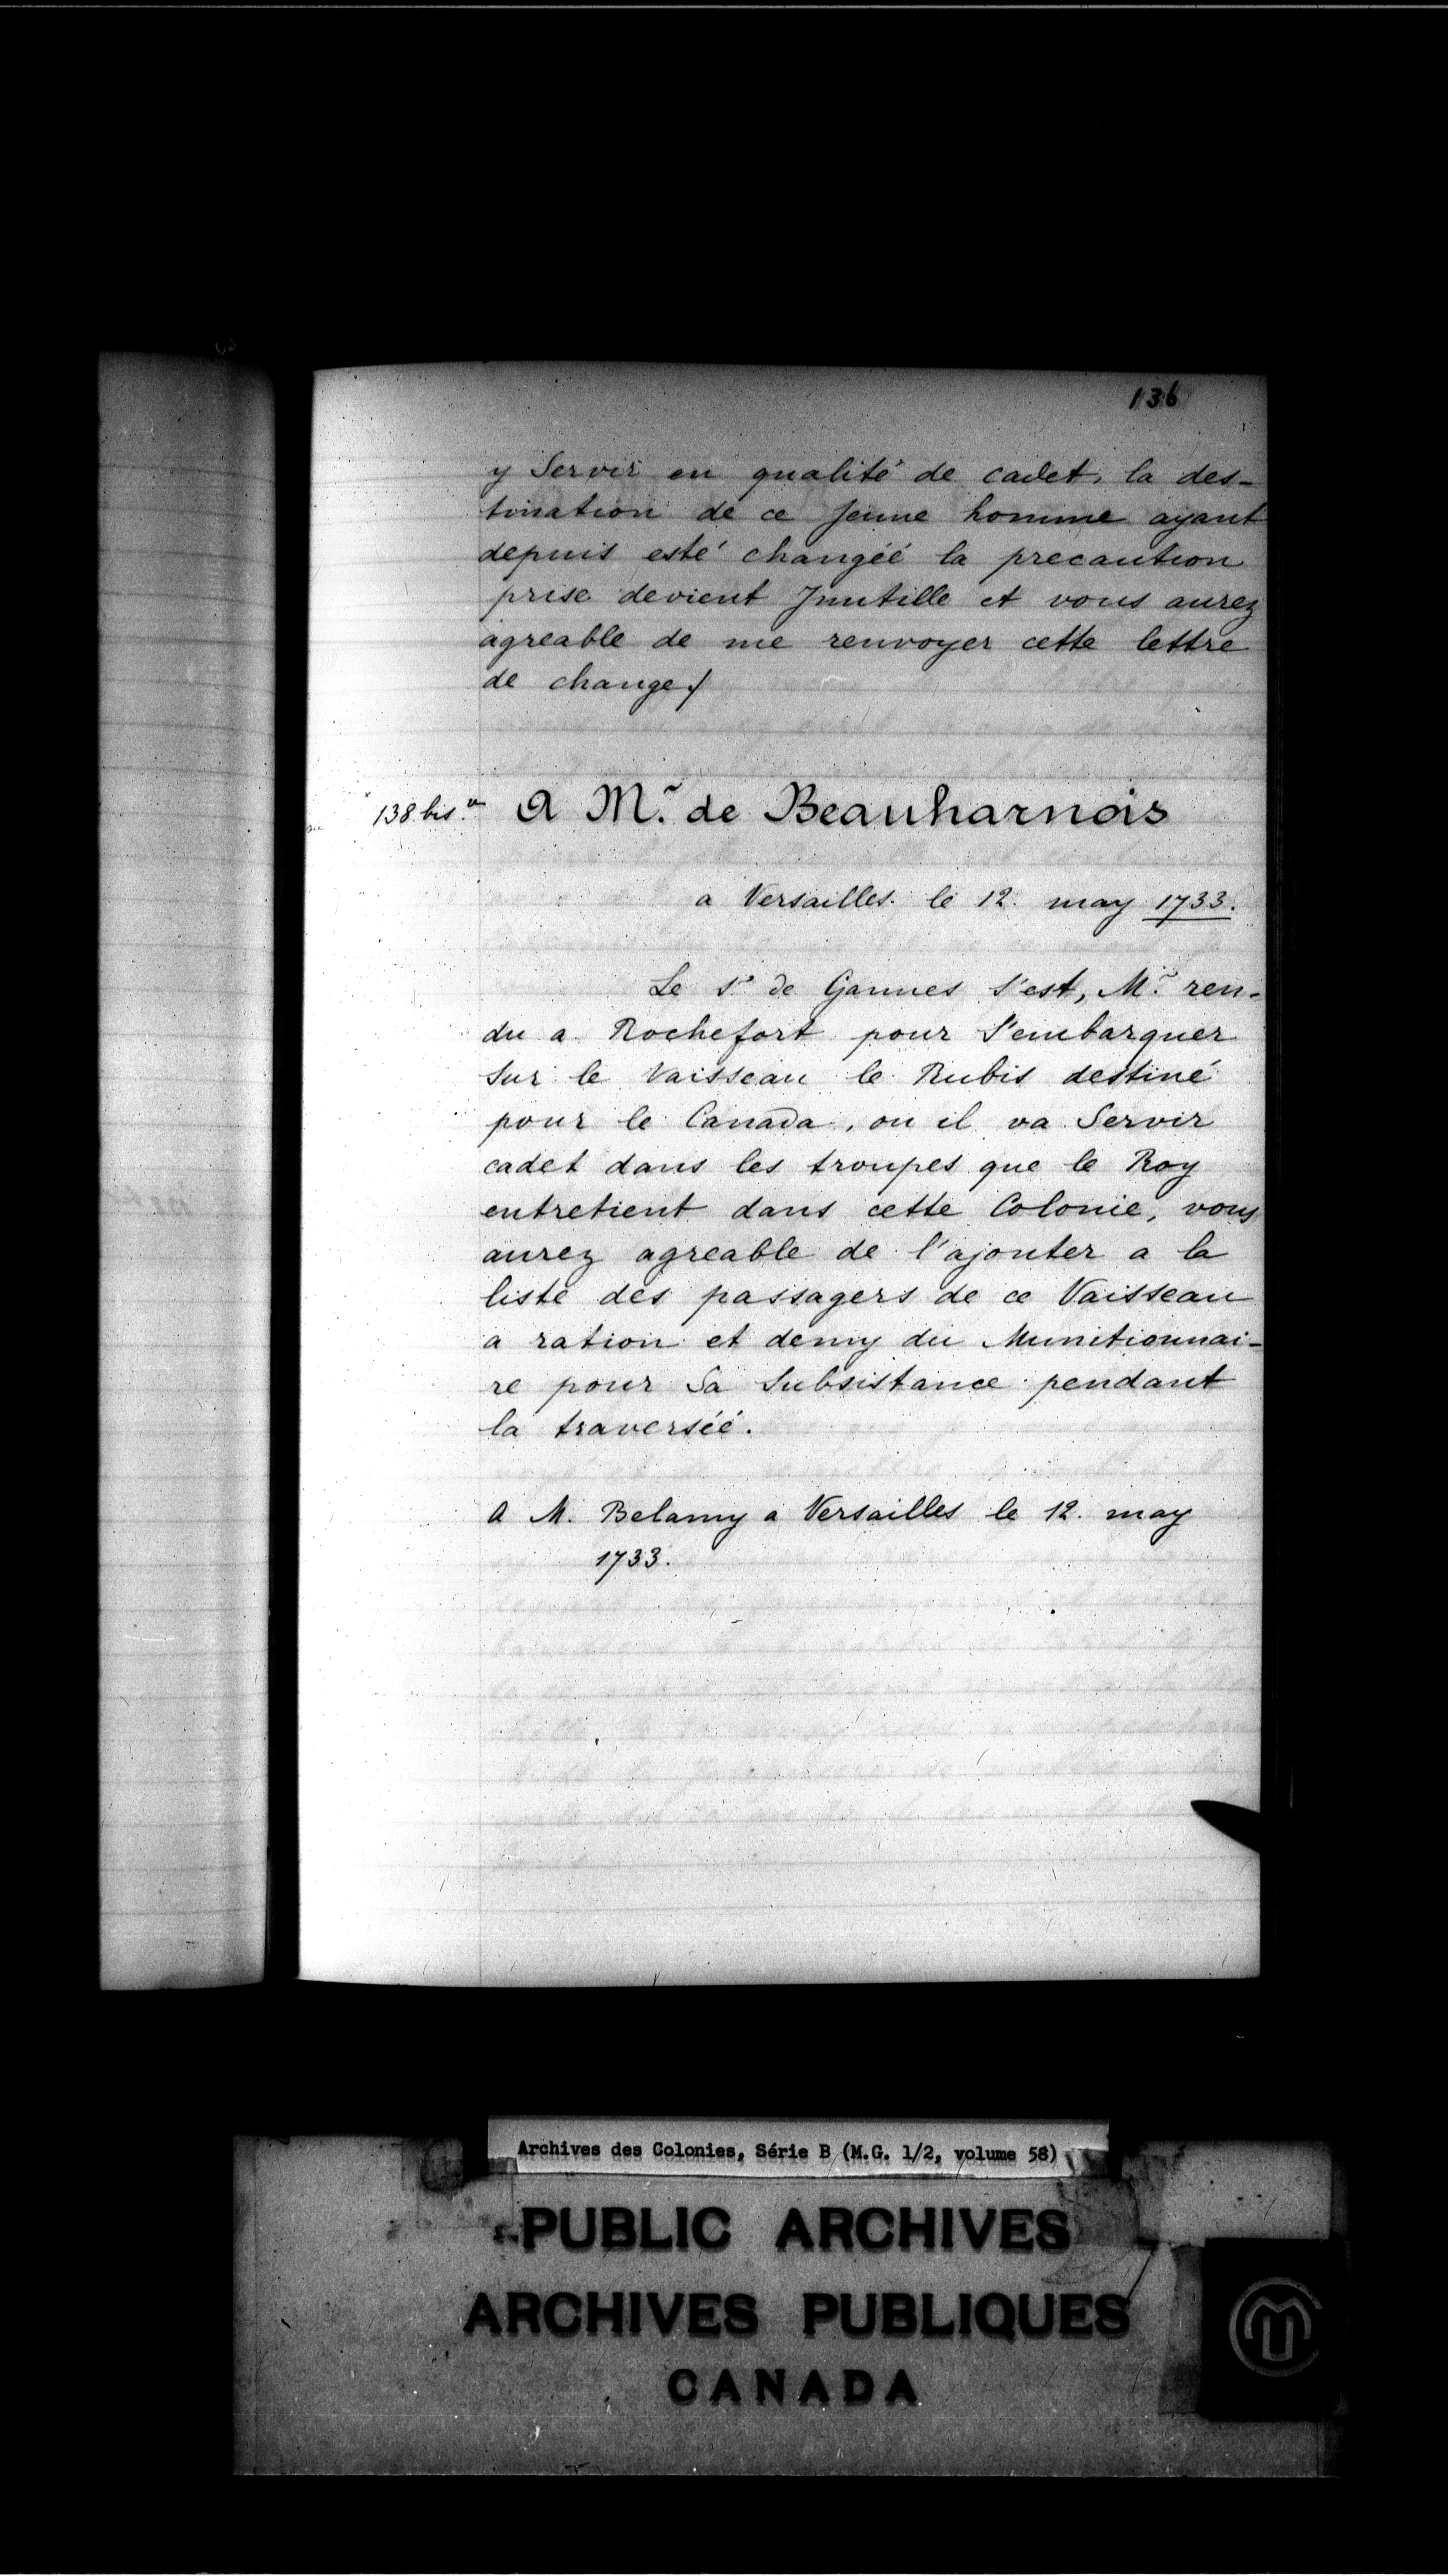 136
y Servir en qualité de cadet, la des-
tination de ce Jeune homme ayant
depuis esté changéé la precaution
prise devient Jnutille et vous aurez
agreable de me renvoyer cette lettre
de change./
138 bis. vo A Mr. de Beauharnois
a Versailles le 12. may 1733.
Le Sr de Gannes S'est, Mr. ren-
du a Rochefort pour S'embarquer
Sur le Vaisseau le Rubis destiné
pour le Canada, ou il va Servir
cadet dans les troupes que le Roy
entretient dans cette Colonie, vous
aurez agreable de l'ajouter a la
liste des passagers de ce Vaisseau
a ration et demy du Munitionnai-
re pour Sa Subsistance pendant
la traverséé.
A M. Belamy a Versailles le 12. may
1733.
Archives des Colonies, Série B (M.G. 1/2, volume 58)
PUBLIC ARCHIVES
ARCHIVES PUBLIQUES
CANADA